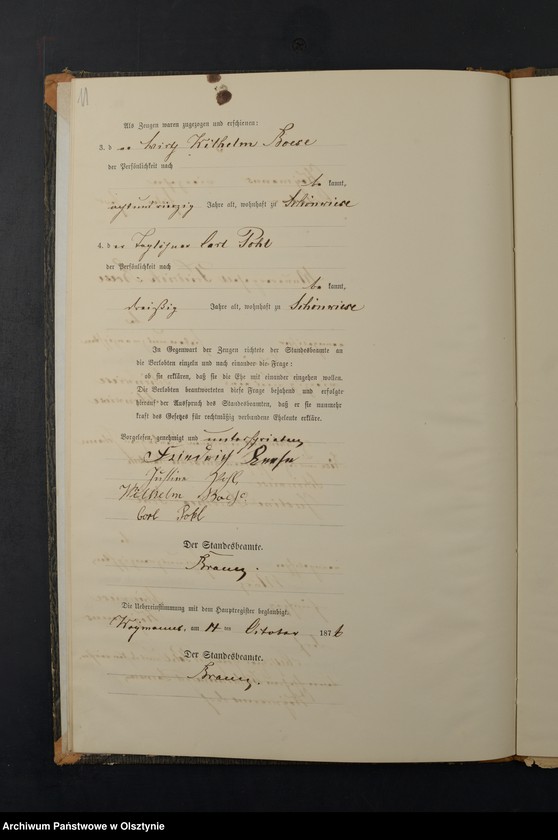 11
Als Zeugen waren zugezogen und erschienen:
3. d er Wirth Wilhelm Boese
der Persönlichkeit nach
be kannt,
achtundvierzig Jahre alt, wohnhaft zu Schönwiese
4. d er Taglöhner Carl Pohl
der Persönlichkeit nach
be kannt,
dreißig Jahre alt, wohnhaft zu Schönwiese
In Gegenwart der Zeugen richtete der Standesbeamte an
die Verlobten einzeln und nach einander die Frage:
ob sie erklären, daß sie die Ehe mit einander eingehen wollen.
Die Verlobten beantworteten diese Frage bejahend und erfolgte
hierauf der Ausspruch des Standesbeamten, daß er sie nunmehr
kraft des Gesetzes für rechtmäßig verbundene Eheleute erkläre.
Vorgelesen, genehmigt und unterschrieben
Friedrich
Justine Pohl
Wilhelm Boese
Carl Pohl
Der Standesbeamte.
Die Uebereinstimmung mit dem Hauptregister beglaubigt.
am ten October 1876
Der Standesbeamte.
Archiwum Państwowe w Olsztynie